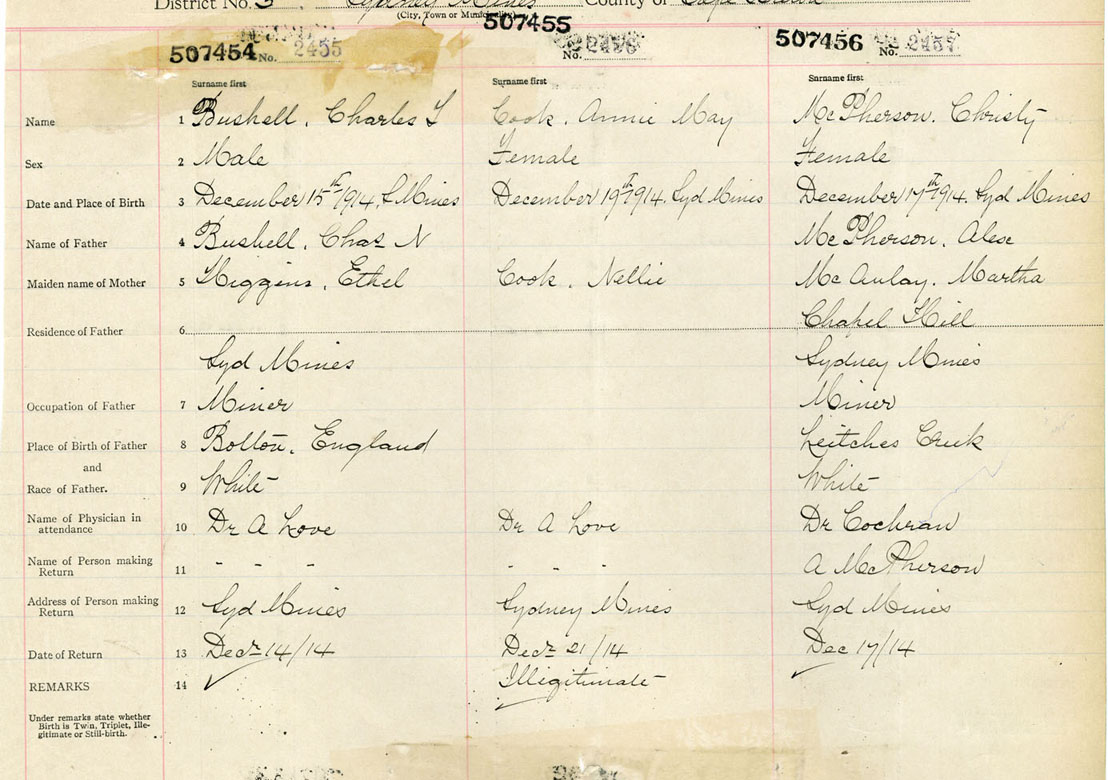 District No. 3, Sydney Mines County of Cape Breton
(City, Town or Municipality)
507454 No. 2455 507455 No. 2456 507456 No. 2457
Surname first Surname first Surname first
Name 1 Bushell, Charles Cook, Annie May McPherson, Christy
Sex 2 Male Female Female
Date and Place of Birth 3 December 15th/1914, S Mines December 19th/1914. Syd Mines December 17th/1914. Syd Mines
Name of Father 4 Bushell, Chas N McPherson, Alex
Maiden name of Mother 5 Higgins, Ethel Cook, Nellie McAulay, Martha
Chapel Hill
Residence of Father 6
Syd Mines Sydney Mines
Occupation of Father 7 Miner Miner
Place of Birth of Father 8 Bolton, England Leitches Creek
and
Race of Father. 9 White White
Name of Physician in attendance 10 Dr A Love Dr A Love Dr Cochran
Name of Person making Return 11 - - - - - - A McPherson
Address of Person making Return 12 Syd Mines Sydney Mines Syd Mines
Date of Return 13 Decr 14/14 Decr 21/14 Dec 17/14
REMARKS 14 Illigitimate
Under remarks state whether
Birth is Twin, Triplet, Ille-
gitimate or Still-birth.